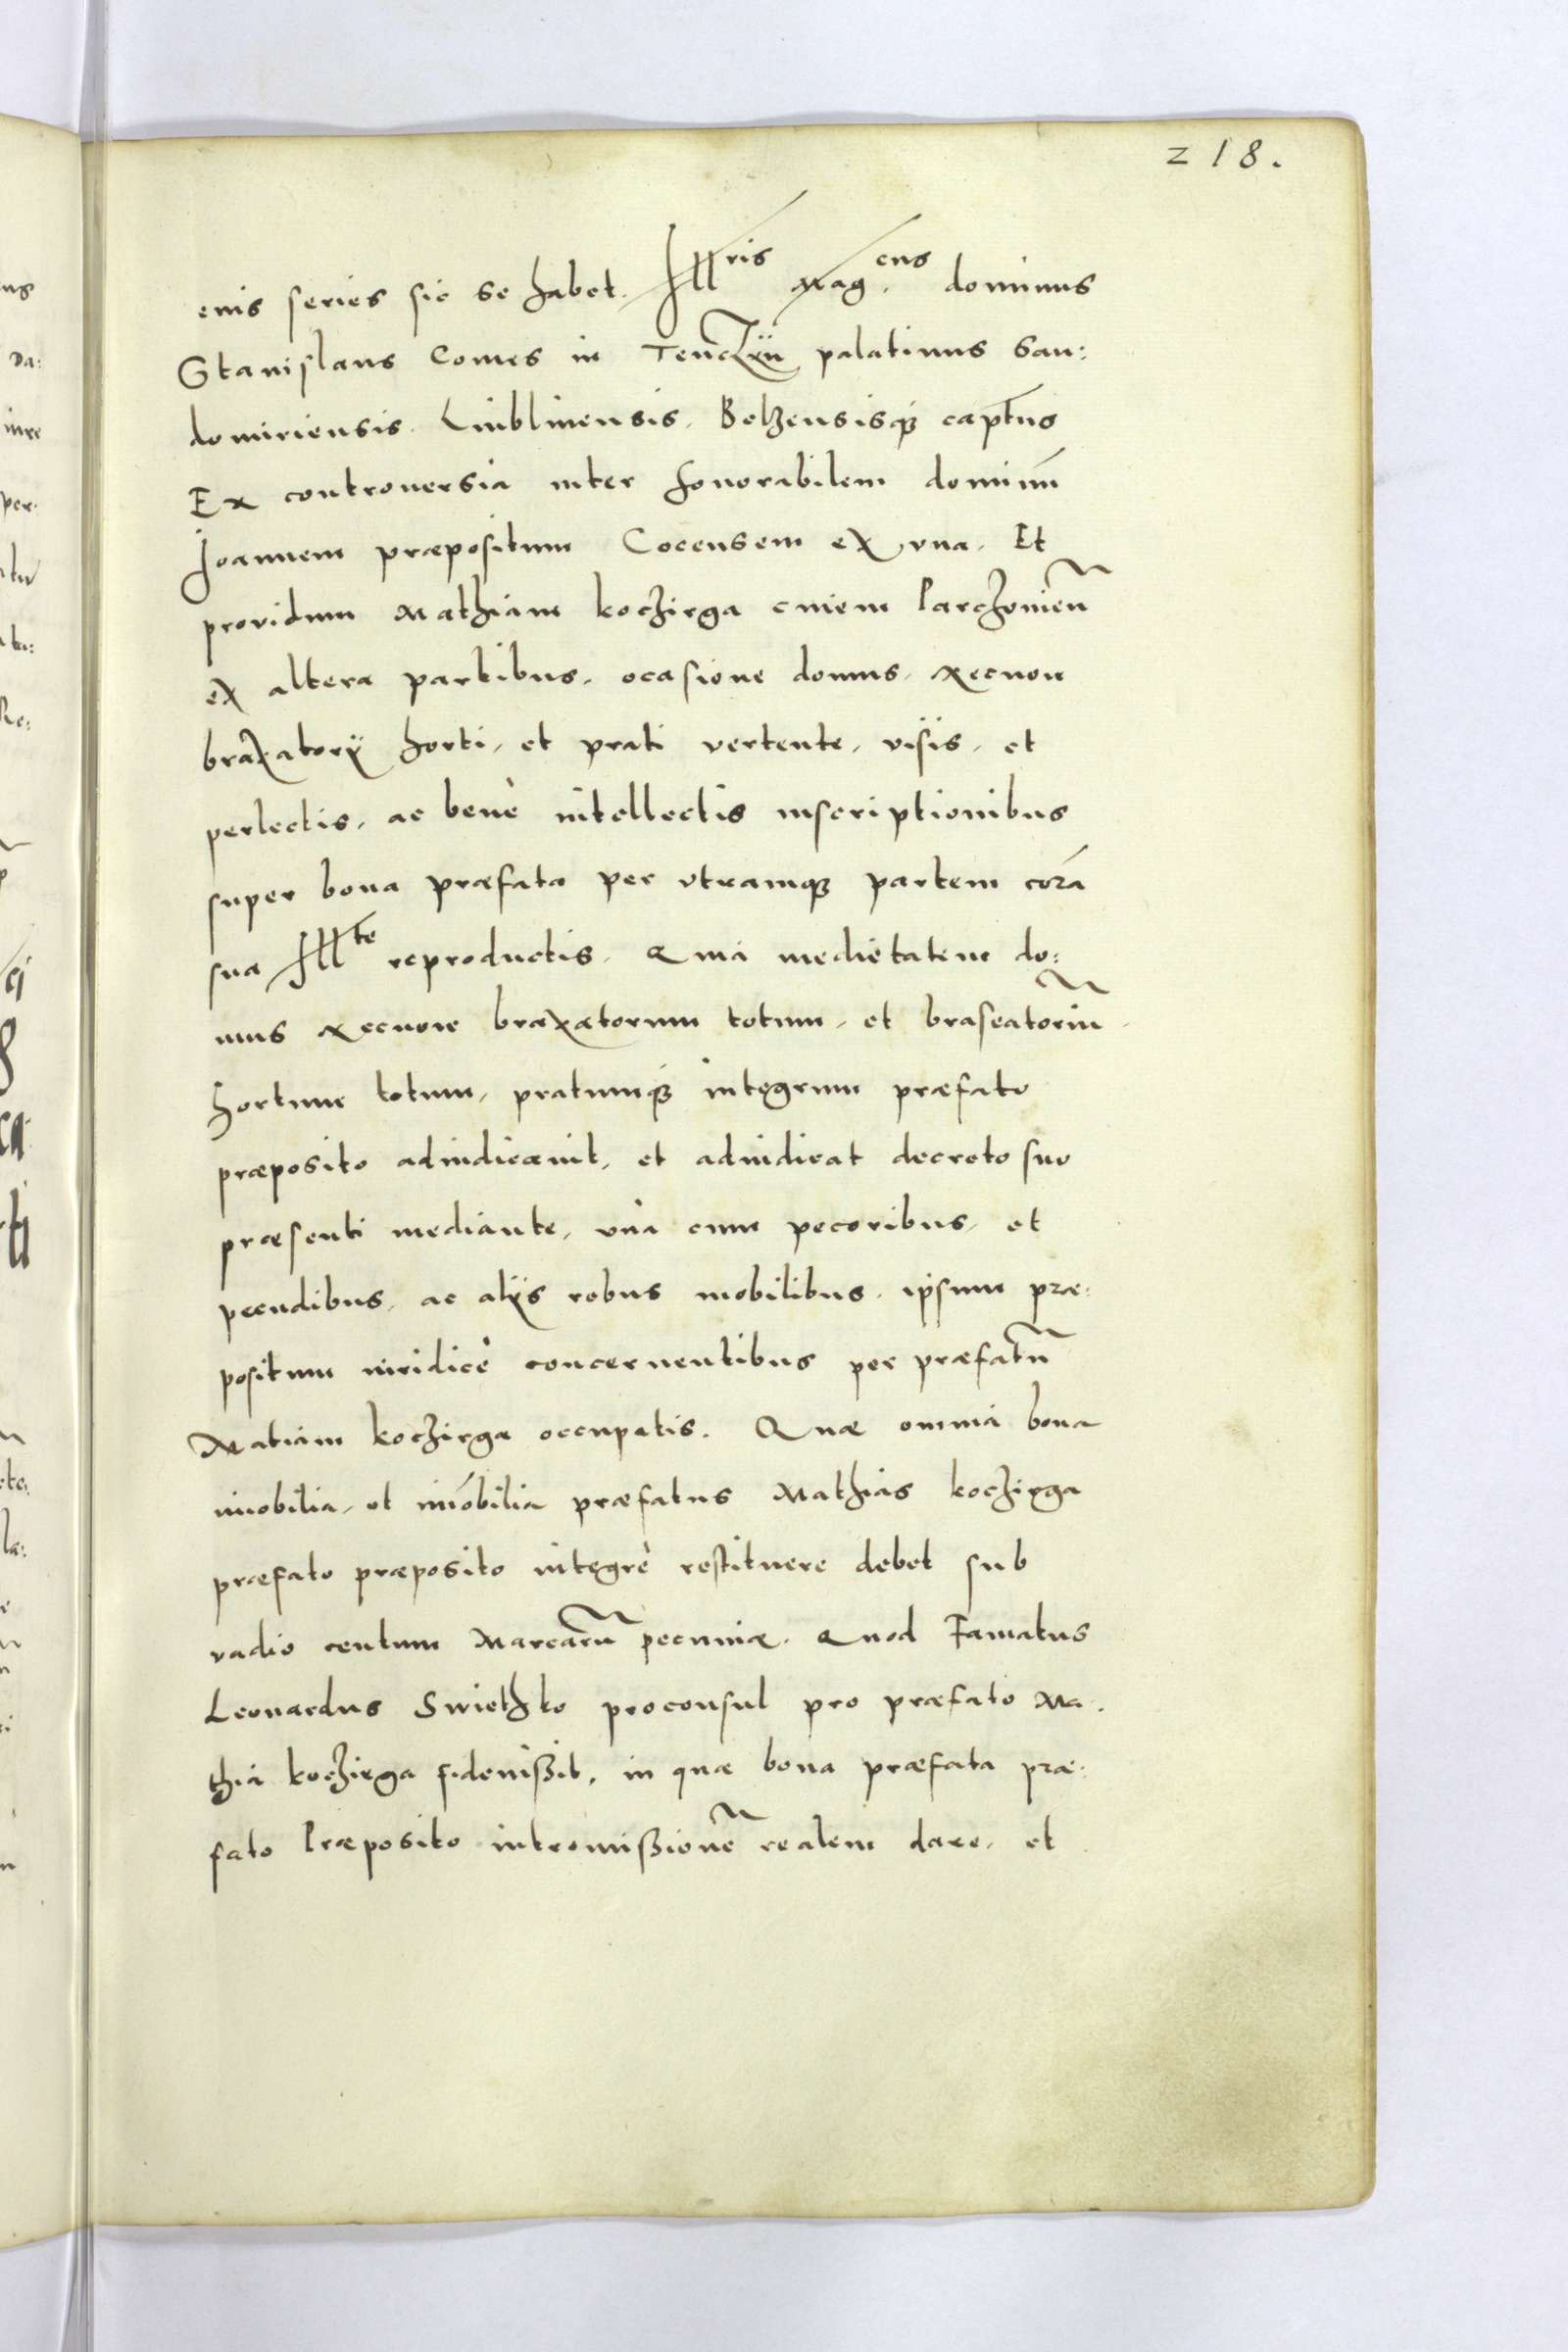 218.
cuius series sic se habet. Illris Mag.cus dominus
Stanislaus Comes in Tenczÿn palatinus San:
domiriensis. Lublinensis. Belzensisq́ꝫ captūs
Ex controuersia inter honorabilem dominū
Joannem præpositum Cocensem ex vna. Et
providum Mathiam kochirga ciuem Parchouien̄
ex altera partibus, ocasione domus, Necnon
braxatorÿ horti, et prati vertente, visis, et
perlectis, ac benè intellectis inscriptionibus
super bona præfata per vtramqꝫ partem corā
sua Illte reproductis. Quia medietatem do:
mus Necnon braxatorum totum, et braseatoriū
hortum totum, pratumq́ꝫ integrum præfato
præposito adiudicauit, et adiudicat decreto suo
præsenti mediante, vnà cum pecoribus, et
pecudibus, ac alÿs rebus mobilibus, ipsum præ:
positum iuridicè concernentibus per præfatū
Matiam kochirga occupatis. Quæ omnia bona
mobilia, et im̄obilia præfatus Mathias kochirga
præfato præposito integrè restituere debet sub
vadio centum Marcarū pecuniæ. Quod Famatus
Leonardus Swiethko proconsul pro præfato Ma.
thia kochirga fideiußit, in quæ bona præfata præ:
fato Præposito intromißionē realem dare, et